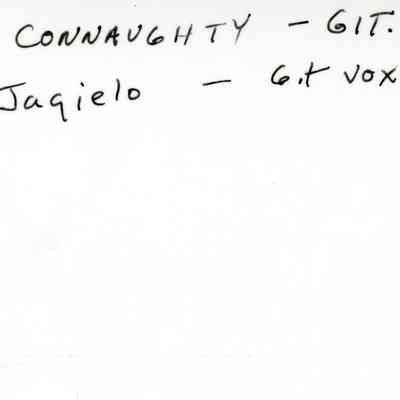 CONNAUGHTY - GIT.
Jagielo - G.t vox